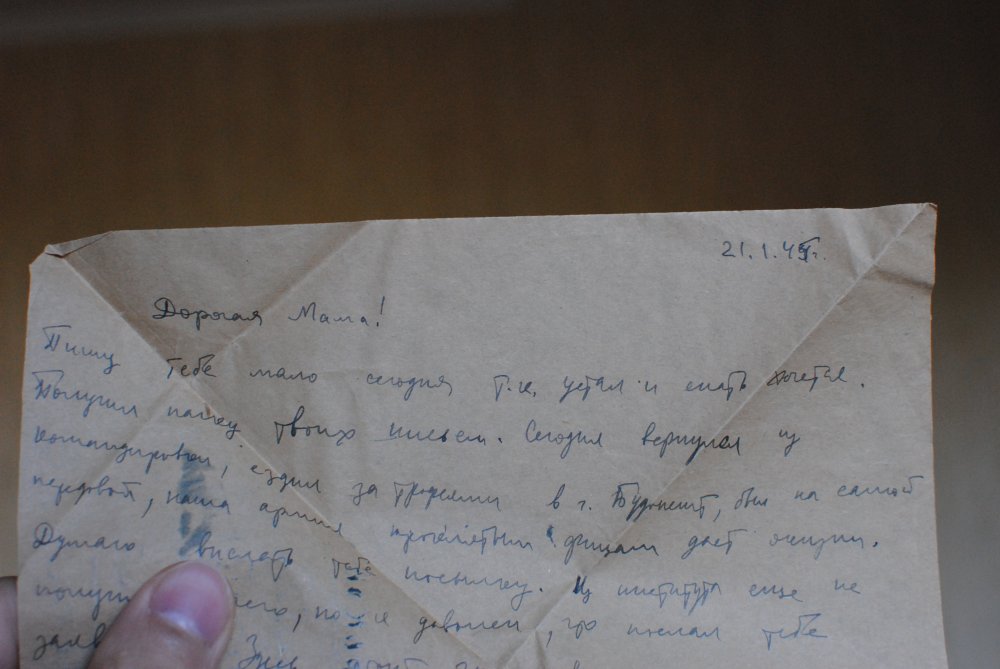 21.1.45г.
Дорогая Мама!
Пишу тебе мало сегодня, т.к. устал и спать хочется.
Получил пачку твоих писем. Сегодня вернулся из
командировки, ездил за трофеями в г. Будапешт, был на самой
передовой, наша армия проклятым фрицам дает жизни.
Думаю выслать тебе посылку. Из института еще не
получил, но я доволен, что послал тебе